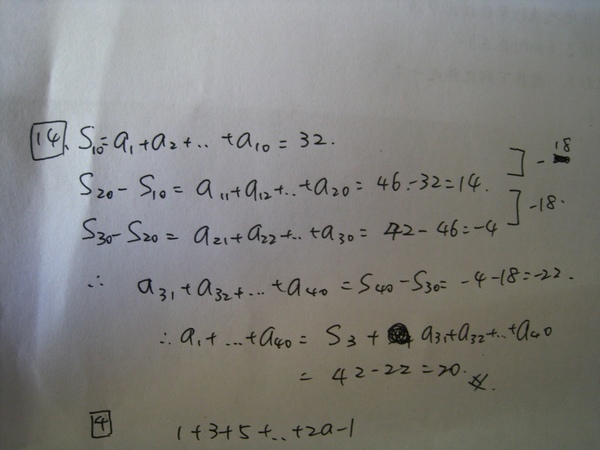 14. S₁₀=a₁+a₂+..+a₁₀=32.
S₂₀-S₁₀=a₁₁+a₁₂+..+a₂₀=46-32=14. ]-18
S₃₀-S₂₀=a₂₁+a₂₂+..+a₃₀=42-46=-4 ]-18.
∴ a₃₁+a₃₂+...+a₄₀=S₄₀-S₃₀=-4-18=-22.
∴a₁+...+a₄₀=S₃+a₃₁+a₃₂+..+a₄₀
=42-22=20.
4 1+3+5+..+2a-1